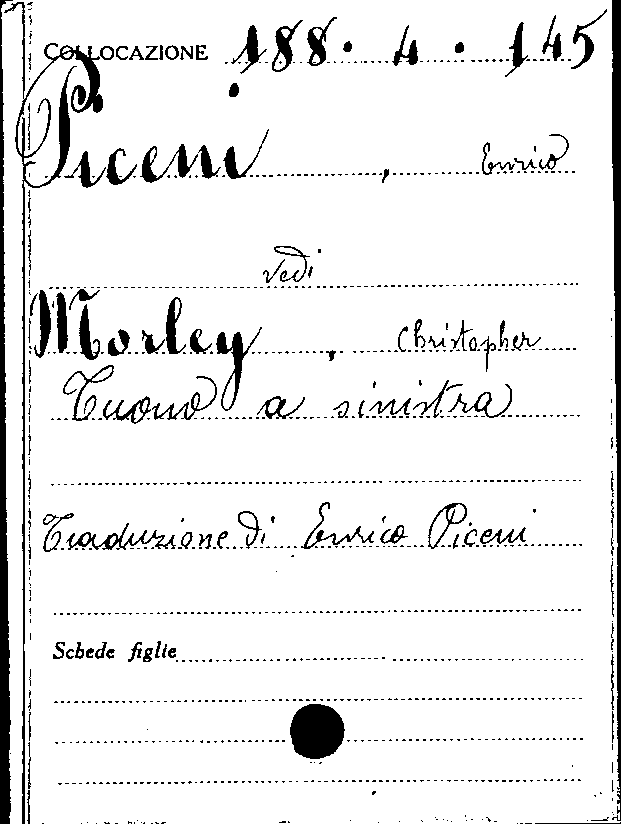 COLLOCAZIONE 188. 4. 145
Piceni, Enrico
vedi
Morley, Christopher
Tuono a sinistra
Traduzione di Enrico Piceni
Schede figlie